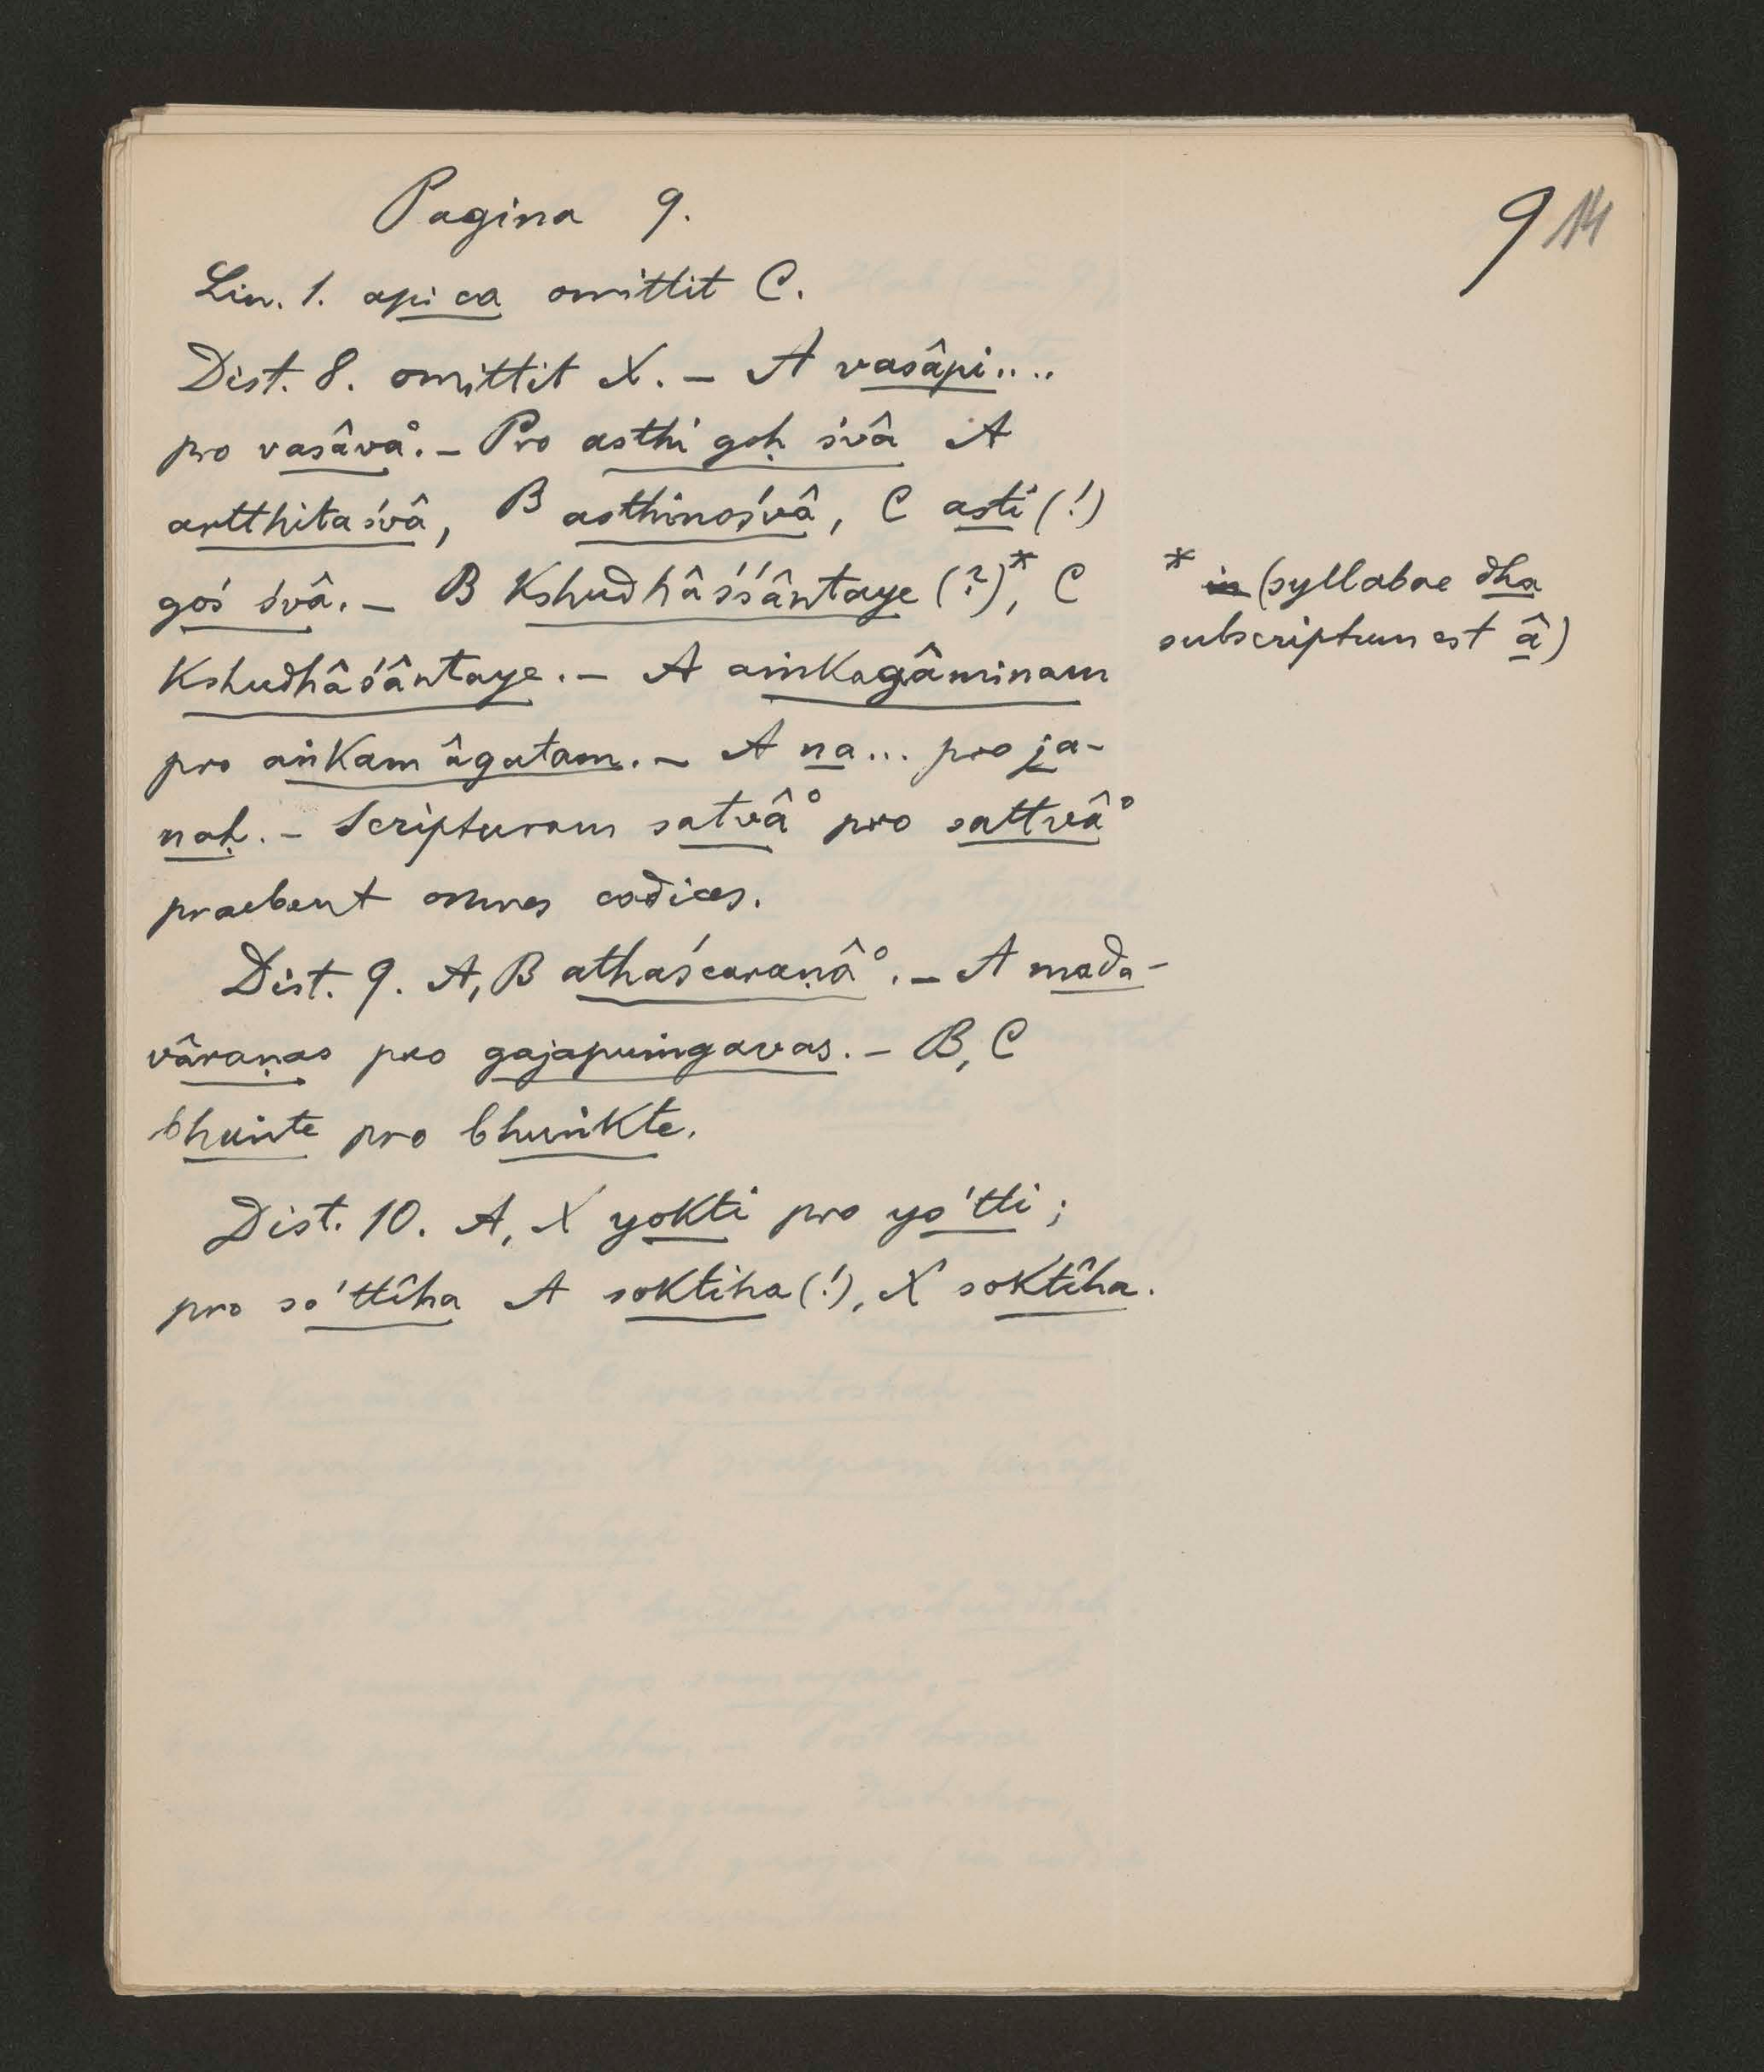 Pagina 9.
9 14
Lin. 1. api ca omittit C.
Dist. 8. omittit X. – A vasâpi....
pro vasâva°. – Pro asthi goḥ śvâ A
artthitaśvâ, B asthinośvâ, C asti (!)
goś śvâ. – B kshudhâśśântaye (?)*, C
kshudhâśântaye. – A aṅkagâminam
pro aṅkam âgatam. – A na... pro ja-
naḥ. – Scripturam satvâ° pro sattvâ°
praebent omnes codices.
Dist. 9. A, B athaścaraṇâ°. – A mada-
vâraṇas pro gajapuṁgavas. – B, C
bhuṅte pro bhuṅkte.
Dist. 10. A, X yokti pro yo'tti;
pro so'ttîha A soktiha (!), X soktîha.
* in (syllabae dha
subscriptum est â)